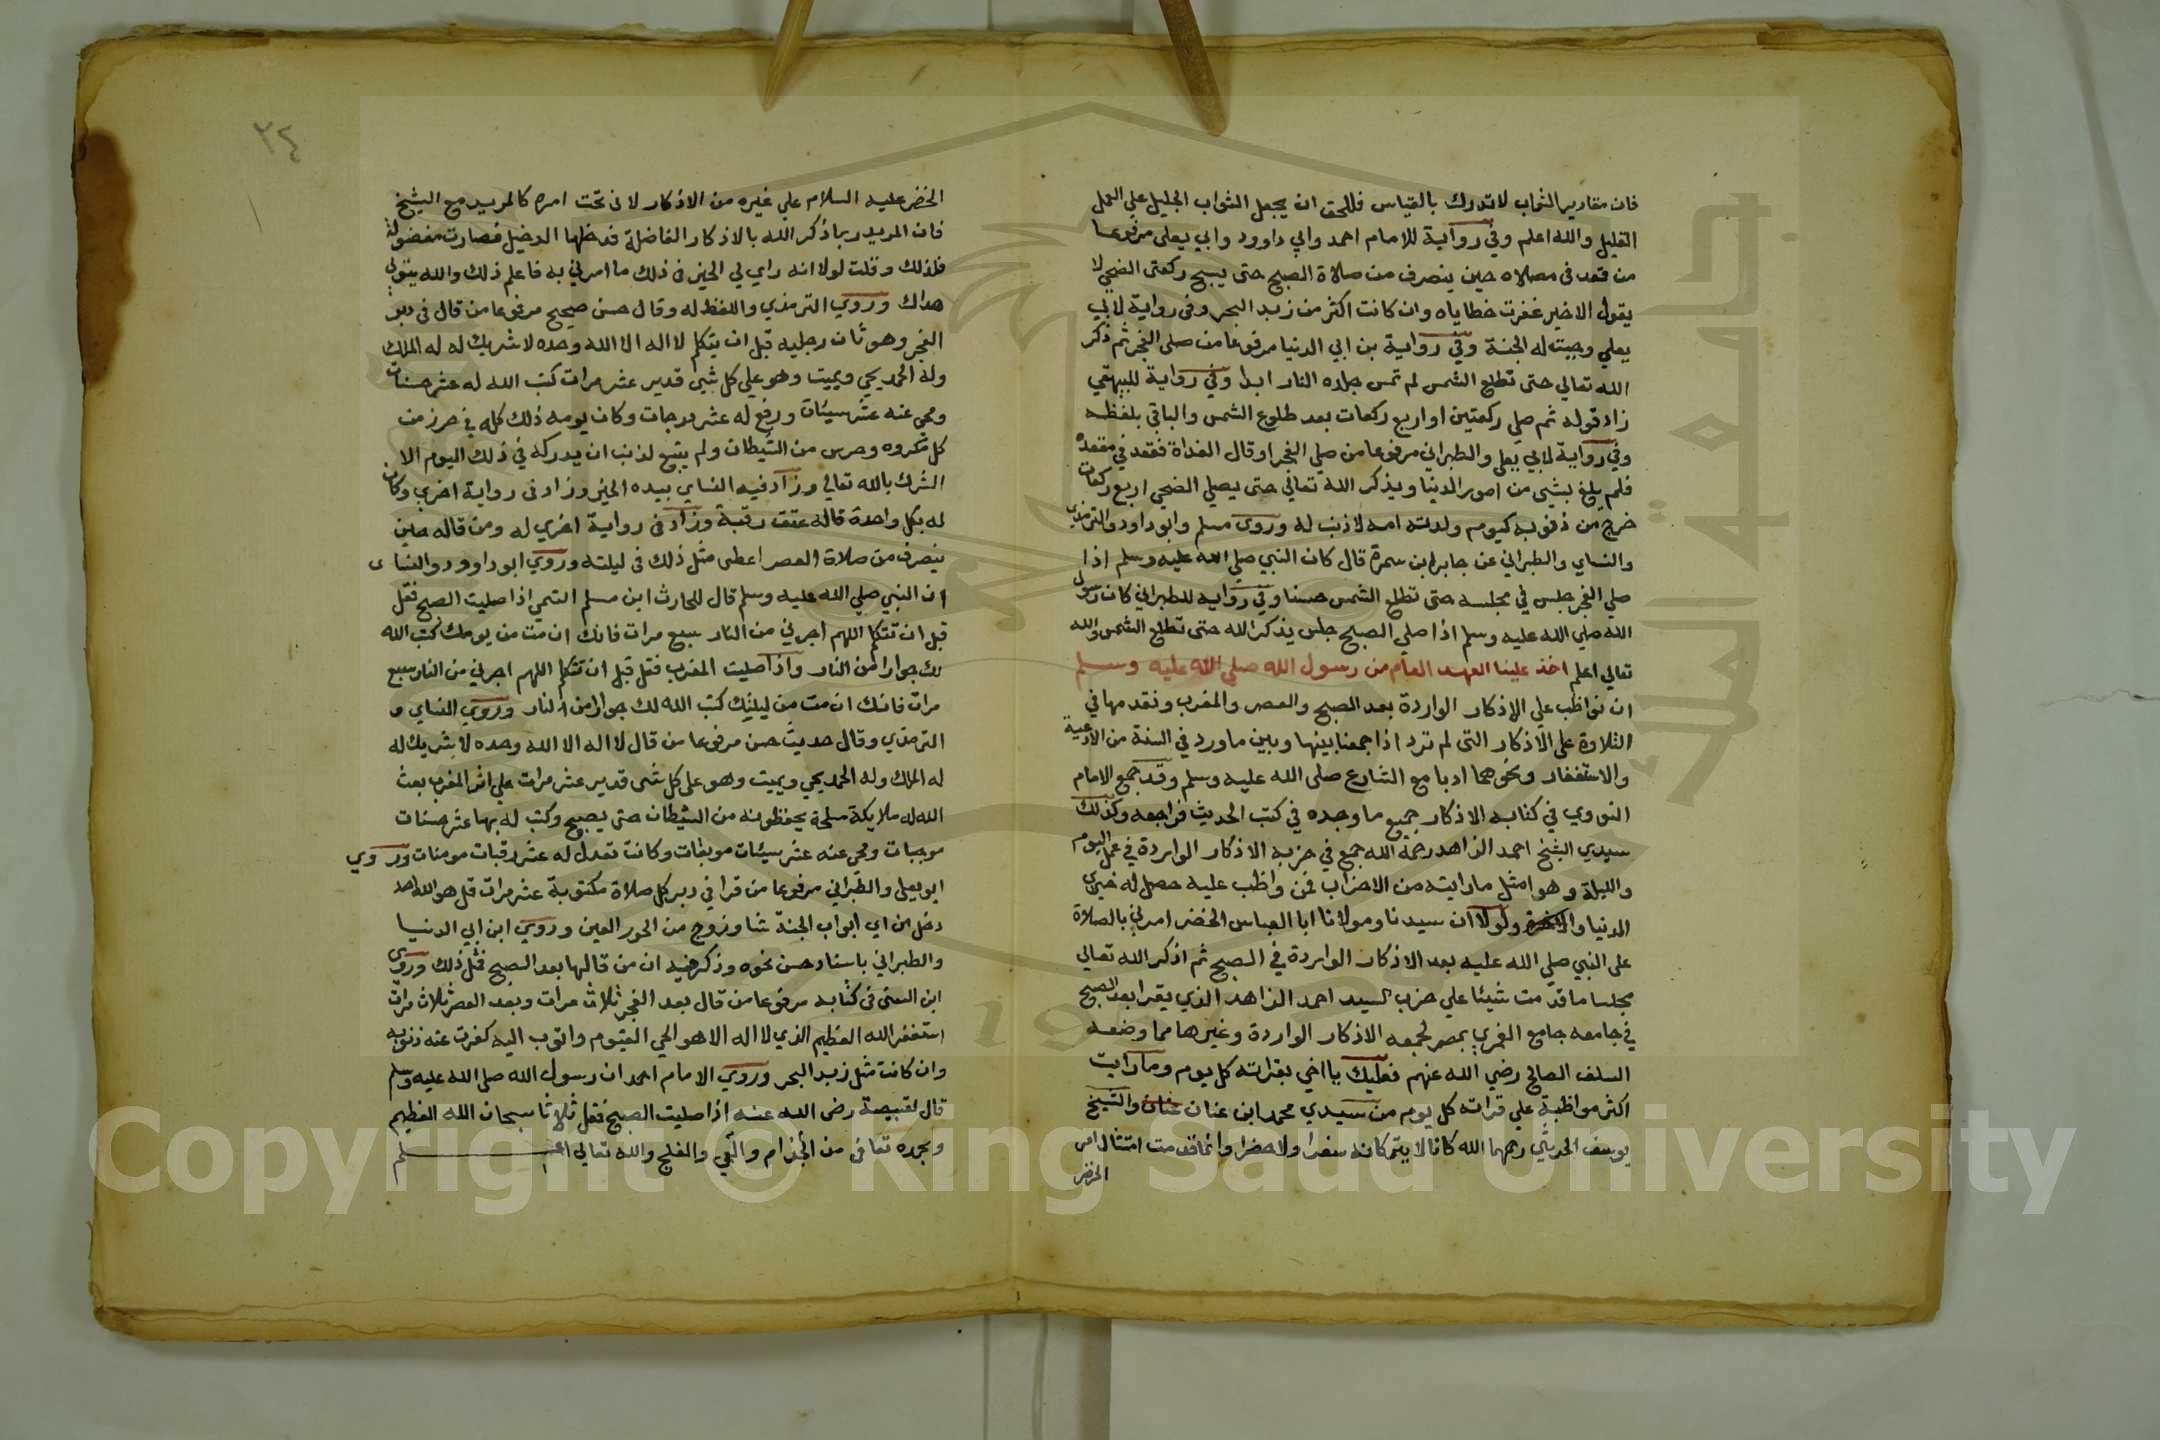 فان مقادير الثواب لا تدرك بالقياس فللحق ان يجعل الثواب الجليل علي العمل
القليل والله اعلم وفي رواية للامام احمد وابي داوود وابي يعلى مرفوعا
من قعد في مصلاه حين ينصرف من صلاة الصبح حتى يسبح ركعتى الضحي لا
يقول الا خير غفرت خطاياه وان كانت اكثر من زبد البحر وفي رواية لابي
يعلي وجبت له الجنة وفي رواية بن ابي الدنيا مرفوعا من صلى الفجر ثم ذكر
الله تعالي حتى تطلع الشمس لم تمس جلده النار ابدا وفي رواية للبيهقي
زاد قوله ثم صلي ركعتين او اربع ركعات بعد طلوع الشمس والباقي بلفظه
وفي رواية لابي يعلى والطبراني مرفوعا من صلي الفجر او قال الغداة فقعد في مقعده
فلم يلغ بشي من امور الدنيا ويذكر الله تعالي حتى يصلي الضحي اربع ركعات
خرج من ذنوبه كيوم ولدته امه لا ذنب له وروى مسلم وابو داود والترمذي
والنساي والطبراني عن جابر ابن سمرة قال كان النبي صلي الله عليه وسلم اذا
صلي الفجر جلس في مجلسه حتى تطلع الشمس حسنا وفي رواية للطبراني كان رسول
الله صلي الله عليه وسلم اذا صلي الصبح جلس يذكر الله حتى تطلع الشمس والله
تعالي اعلم اخذ علينا العهد العام من رسول الله صلي الله عليه وسلم
ان نواظب علي الاذكار الواردة بعد الصبح والعصر والمغرب ونقدمها في
التلاوة على الاذكار التى لم ترد اذا جمعنا بينها وبين ما ورد في السنة من الادعية
والاستغفار ونحوهما ادبا مع الشارع صلى الله عليه وسلم وقد جمع الامام
النووي في كتابه الاذكار جميع ما وجده في كتب الحديث فراجعه وكذلك
سيدي الشيخ احمد الزاهد رحمه الله جمع في حزبه الاذكار الواردة في عمل اليوم
والليلة وهو امثل ما رايته من الاحزاب فمن واظب عليه حصل له خيري
الدنيا والاخرة ولولا ان سيدنا ومولانا ابا العباس الخضر امرني بالصلاة
على النبي صلي الله عليه بعد الاذكار الواردة في الصبح ثم اذكر الله تعالي
مجلسا ما قدمت شيئا علي حزب السيد احمد الزاهد الذي يقرا بعد الصبح
في جامعه جامع الفخري بمصر لجمعه الاذكار الواردة وغيرها مما وضعه
السلف الصالح رضي الله عنهم فعليك يا اخي بقراته كل يوم وما رايت
اكثر مواظبة علي قراته كل يوم من سيدي محمد ابن عنان عنان والشيخ
يوسف الحريثي رحمهما الله كانا لا يتركانه سفرا ولا حضرا وانما قدمت امتثال امر
الخضر
٢٤
الخضر عليه السلام علي غيره من الاذكار لانى تحت امره كالمريد مع الشيخ
فان المريد ربما ذكر الله بالاذكار الفاضلة فدخلها الدخيل فصارت مفضولة
فلذلك وقلت لولا انه راي لي الخير في ذلك ما امرني به فاعلم ذلك والله يتولي
هداك وروي الترمذي واللفظ له وقال حسن صحيح مرفوعا من قال في دبر
الفجر وهو ثان رجليه قبل ان يتكلم لا اله الا الله وحده لا شريك له له الملك
وله الحمد يحي ويميت وهو علي كل شي قدير عشر مرات كتب الله له عشر حسنات
ومحي عنه عشر سيئات ورفع له عشر درجات وكان يومه ذلك كله في حرز من
كل مكروه وحرس من الشيطان ولم يتبع لذنب ان يدركه في ذلك اليوم الا
الشرك بالله تعالي وزاد فيه النساي بيده الخير وزاد في رواية اخري وكان
له بكل واحدة قاله عتق رقبة وزاد في رواية اخري له ومن قاله حين
ينصرف من صلاة العصر اعطى مثل ذلك في ليلته وروي ابو داوود والنساى
ان النبي صلي الله عليه وسلم قال للحارث ابن مسلم التميمي اذا صليت الصبح فقل
قبل ان تتكلم اللهم اجرني من النار سبع مرات فانك ان مت من يومك كتب الله
لك جوارا من النار واذا صليت المغرب فقل قبل ان تتكلم اللهم اجرني من النار سبع
مرات فانك ان مت من ليلتك كتب الله لك جوارا من النار وروي النساي و
الترمذي وقال حديث حسن مرفوعا من قال لا اله الا الله وحده لا شريك له
له الملك وله الحمد يحي ويميت وهو على كل شى قدير عشر مرات علي اثر المغرب بعث
الله له ملايكة مسلحة يحفظونه من الشيطان حتى يصبح وكتب له بها عشر حسنات
موجبات ومحي عنه عشر سيئات موبقات وكانت تعدل له عشر رقبات مومنات وروي
ابو يعلى والطبراني مرفوعا من قرا في دبر كل صلاة مكتوبة عشر مرات قل هو الله احد
دخل من اي ابواب الجنة شا وزوج من الحور العين وروي ابن ابي الدنيا
والطبراني باسناد حسن نحوه وذكر فيه ان من قالها بعد الصبح فمثل ذلك وروي
ابن السنى في كتابه مرفوعا من قال بعد الفجر ثلاث مرات وبعد العصر ثلاث مرات
استغفر الله العظيم الذي لا اله الا هو الحي القيوم واتوب اليه كفرت عنه ذنوبه
وان كانت مثل زبد البحر وروي الامام احمد ان رسول الله صلى الله عليه وسلم
قال لقبيصة رضى الله عنه اذا صليت الصبح فقل ثلاثا سبحان الله العظيم
وبحمده تعافى من الجذام والعمي والفلج والله تعالي اعلم
جامعة الملك سعود
Copyright © King Saud University